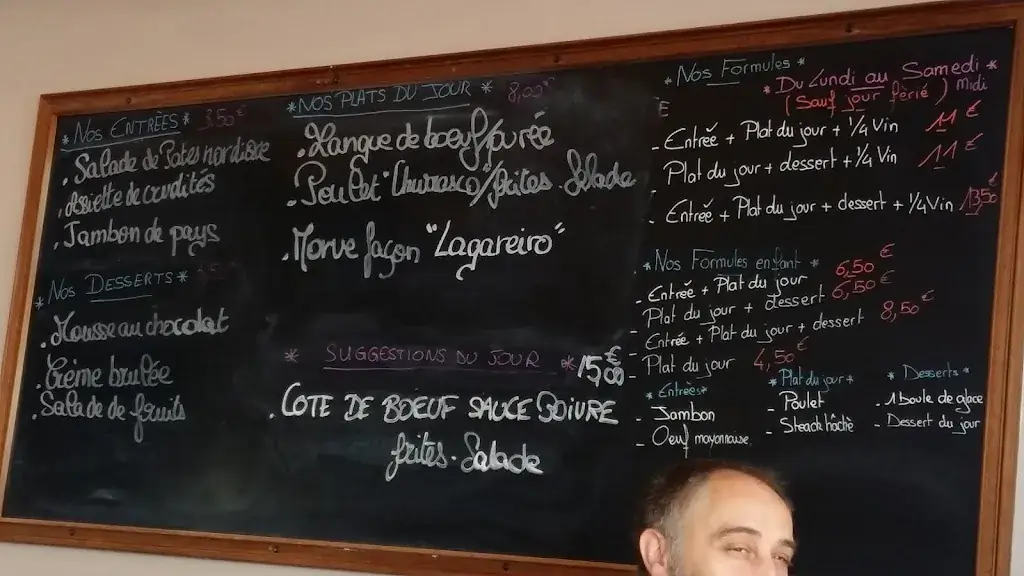 * Nos Entrées * 3,50€
. Salade de Pates nordique
. Assiette de crudités
. Jambon de pays
* Nos Desserts *
. Mousse au chocolat
. Crème brulée
. Salade de fruits
* NOS PLATS DU JOUR * 8,00€
. Langue de boeuf/purée
. Poulet "Churrasco"/frites. Salade
. Morue façon "Lagareiro"
* SUGGESTIONS DU JOUR * 15,00€
. COTE DE BOEUF SAUCE POIVRE
frites. Salade
* Nos Formules *
* Du Lundi au Samedi * midi
(Sauf jour férié)
- Entrée + Plat du jour + 1/4 Vin 11€
- Plat du jour + dessert + 1/4 Vin 11€
- Entrée + Plat du jour + dessert + 1/4 Vin 13,50€
* Nos Formules enfant *
- Entrée + Plat du jour 6,50€
- Plat du jour + dessert 6,50€
- Entrée + Plat du jour + dessert 8,50€
- Plat du jour 4,50€
* Entrées *
- Jambon
- Oeuf mayonnaise
* Plat du jour *
- Poulet
- Steack hâché
* Desserts *
- 1 boule de glace
- Dessert du jour